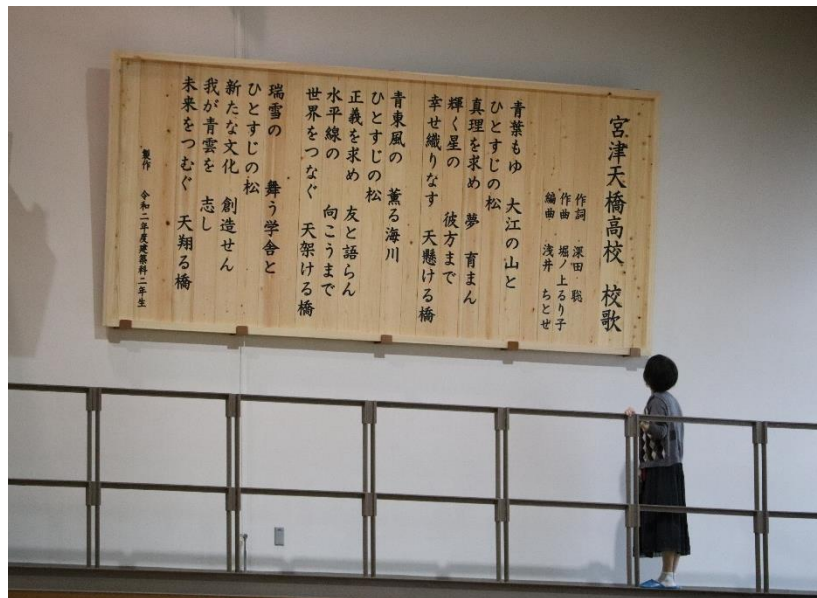 宮津天橋高校 校歌
作詞 深田 聡
作曲 堀ノ上るり子
編曲 浅井 ちとせ
青葉もゆ 大江の山と
ひとすじの松
真理を求め 夢 育まん
輝く星の 彼方まで
幸せ織りなす 天懸ける橋
青東風の 薫る海川
ひとすじの松
正義を求め 友と語らん
水平線の 向こうまで
世界をつなぐ 天架ける橋
瑞雪の 舞う学舎と
ひとすじの松
新たな文化 創造せん
我が青雲を 志し
未来をつむぐ 天翔る橋
製作 令和二年度建築科二年生